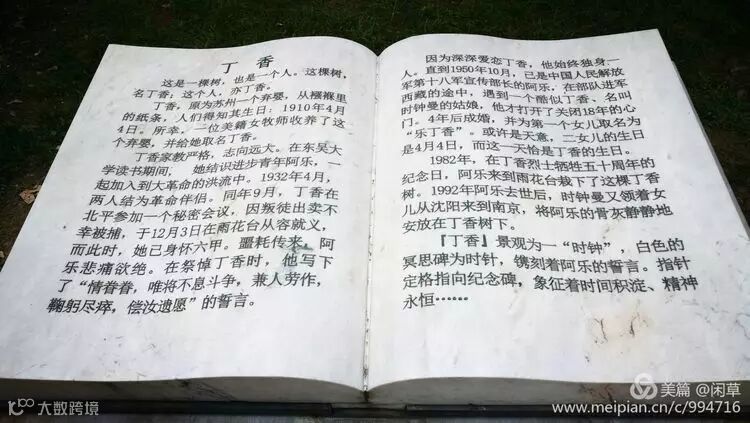 丁香
这是一棵树，也是一个人。这棵树，
名丁香；这个人，亦丁香。
丁香，原为苏州一个弃婴，从襁褓里
的纸条，人们得知其生日：1910年4月
4日。所幸，一位美籍女牧师收养了这
个弃婴，并给她取名丁香。
丁香家教严格，志向远大。在东吴大
学读书期间，她结识进步青年阿乐，一
起加入到大革命的洪流中。1932年4月，
两人结为革命伴侣。同年9月，丁香在
北平参加一个秘密会议，因叛徒出卖不
幸被捕，于12月3日在雨花台从容就义，
而此时，她已身怀六甲。噩耗传来，阿
乐悲痛欲绝。在祭悼丁香时，他写下
了“情眷眷，唯将不息斗争，兼人劳作，
鞠躬尽瘁，偿汝遗愿”的誓言。
因为深深爱恋丁香，他始终独身一
人。直到1950年10月，已是中国人民解放
军第十八军宣传部长的阿乐，在部队进军
西藏的途中，遇到一个酷似丁香、名叫
时钟曼的姑娘，他才打开了关闭18年的心
门。4年后成婚，并为第一个女儿取名为
“乐丁香”。或许是天意，二女儿的生日
是4月4日，而这一天恰是丁香的生日。
1982年，在丁香烈士牺牲五十周年的
纪念日，阿乐来到雨花台栽下了这棵丁香
树。1992年阿乐去世后，时钟曼又领着女
儿从沈阳来到南京，将阿乐的骨灰静静地
安放在丁香树下。
『丁香』景观为一“时钟”，白色的
冥思碑为时针，镌刻着阿乐的誓言。指针
定格指向纪念碑，象征着时间积淀、精神
永恒……
美篇 @闲草
www.meipian.cn/c/994716
大数跨境